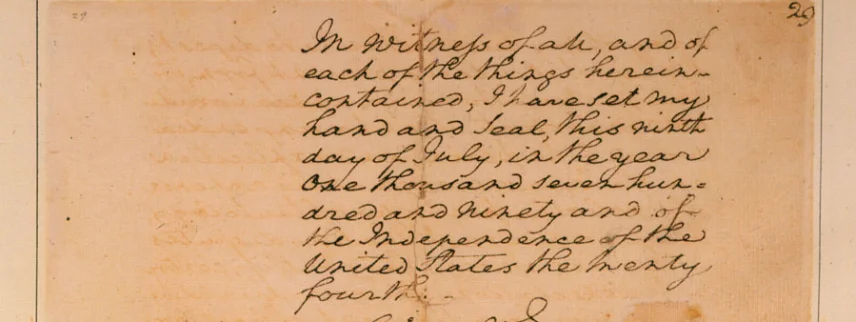 29
In witness of all, and of
each of the things herein-
contained, I have set my
hand and Seal, this ninth
day of July, in the year
One thousand seven hun=
dred and ninety and of
the Independence of the
United States the twenty
fourth.-